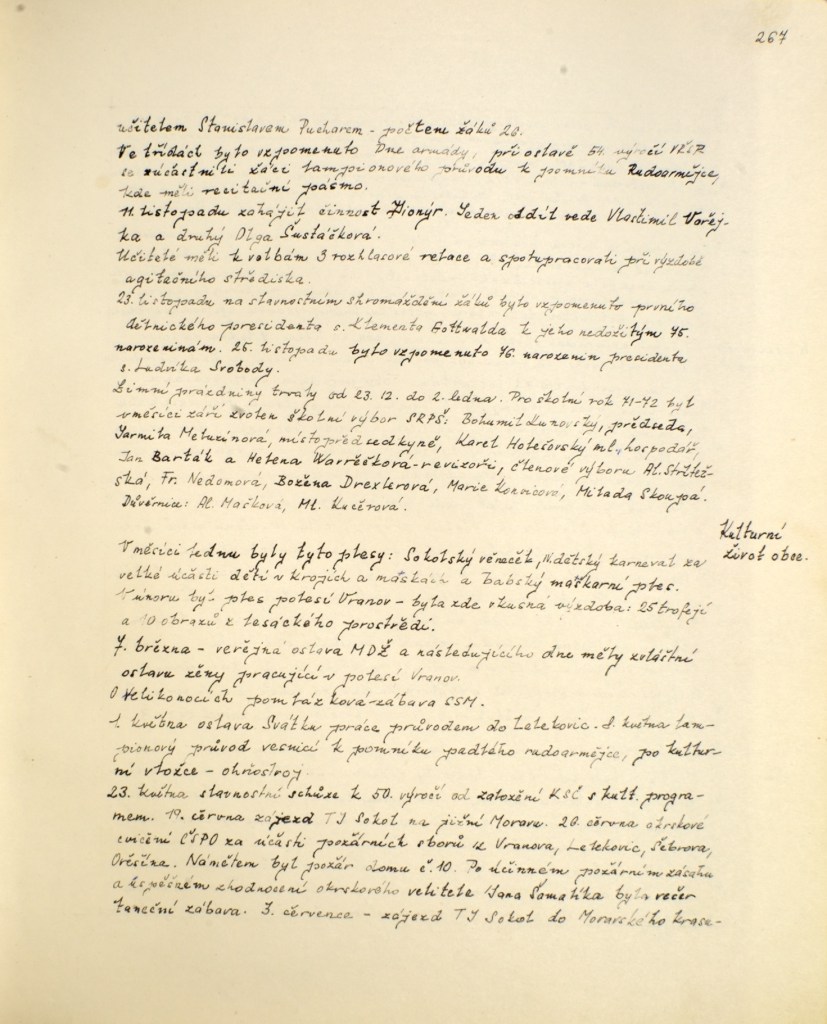 267
učitelem Stanislavem Pucharem - počtem žáků 20.
Ve třídách bylo vzpomenuto Dne armády, při oslavě 54. výročí VŘSR
se zúčastnili žáci lampionového průvodu k pomníku Rudoarmějce,
kde měli recitační pásmo.
11. listopadu zahájil činnost Pionýr. Jeden oddíl vede Vlastimil Vorej-
ka a druhý Olga Šustáčková.
Učitelé měli k volbám 3 rozhlasové relace a spolupracovali při výzdobě
agitačního střediska.
23. listopadu na slavnostním shromáždění žáků bylo vzpomenuto prvního
dělnického presidenta s. Klementa Gottwalda k jeho nedožitým 75.
narozeninám. 25. listopadu bylo vzpomenuto 76. narozenin presidenta
s. Ludvíka Svobody.
Zimní prázdniny trvaly od 23. 12. do 2. ledna. Pro školní rok 71-72 byl
v měsíci září zvolen školní výbor SRPŠ: Bohumil Zunovský, předseda,
Jarmila Meluzínová, místopředsedkyně, Karel Holešovský ml., hospodář,
Jan Barták a Helena - revizoři, členové výboru Al. Střítež-
ská, Fr. Nedomová, Božena Drexlerová, Marie Konvicová, Milada Skoupá.
Důvěrnice: Al. Mašková, Ml. Kučerová.
Kulturní
život obce.
V měsíci lednu byly tyto plesy: Sokolský věneček, dětský karneval za
velké účasti dětí v krojích a maskách a babský maškarní ples.
V únoru byl ples polesí Vranov - byla zde vkusná výzdoba: 25 trofejí
a 10 obrazů z lesáckého prostředí.
7. března - veřejná oslava MDŽ a následujícího dne měly zvláštní
oslavu ženy pracující v polesí Vranov.
O Velikonocích pomlázková zábava SSM.
1. května oslava Svátku práce průvodem do Lelekovic. 8. května lam-
pionový průvod vesnicí k pomníku padlého rudoarmějce, po kultur-
ní vložce - ohňostroj.
23. května slavnostní schůze k 50. výročí od založení KSČ s kult. progra-
mem. 19. června zájezd TJ Sokol na jižní Moravu. 20. června okrskové
cvičení ČSPO za účasti požárních sborů z Vranova, Lelekovic, Šebrova,
Ořešína. Námětem byl požár domu č. 10. Po účinném požárním zásahu
a úspěšném zhodnocení okrskového velitele Jana Šamalíka byla večer
taneční zábava. 3. července - zájezd TJ Sokol do Moravského krasu-